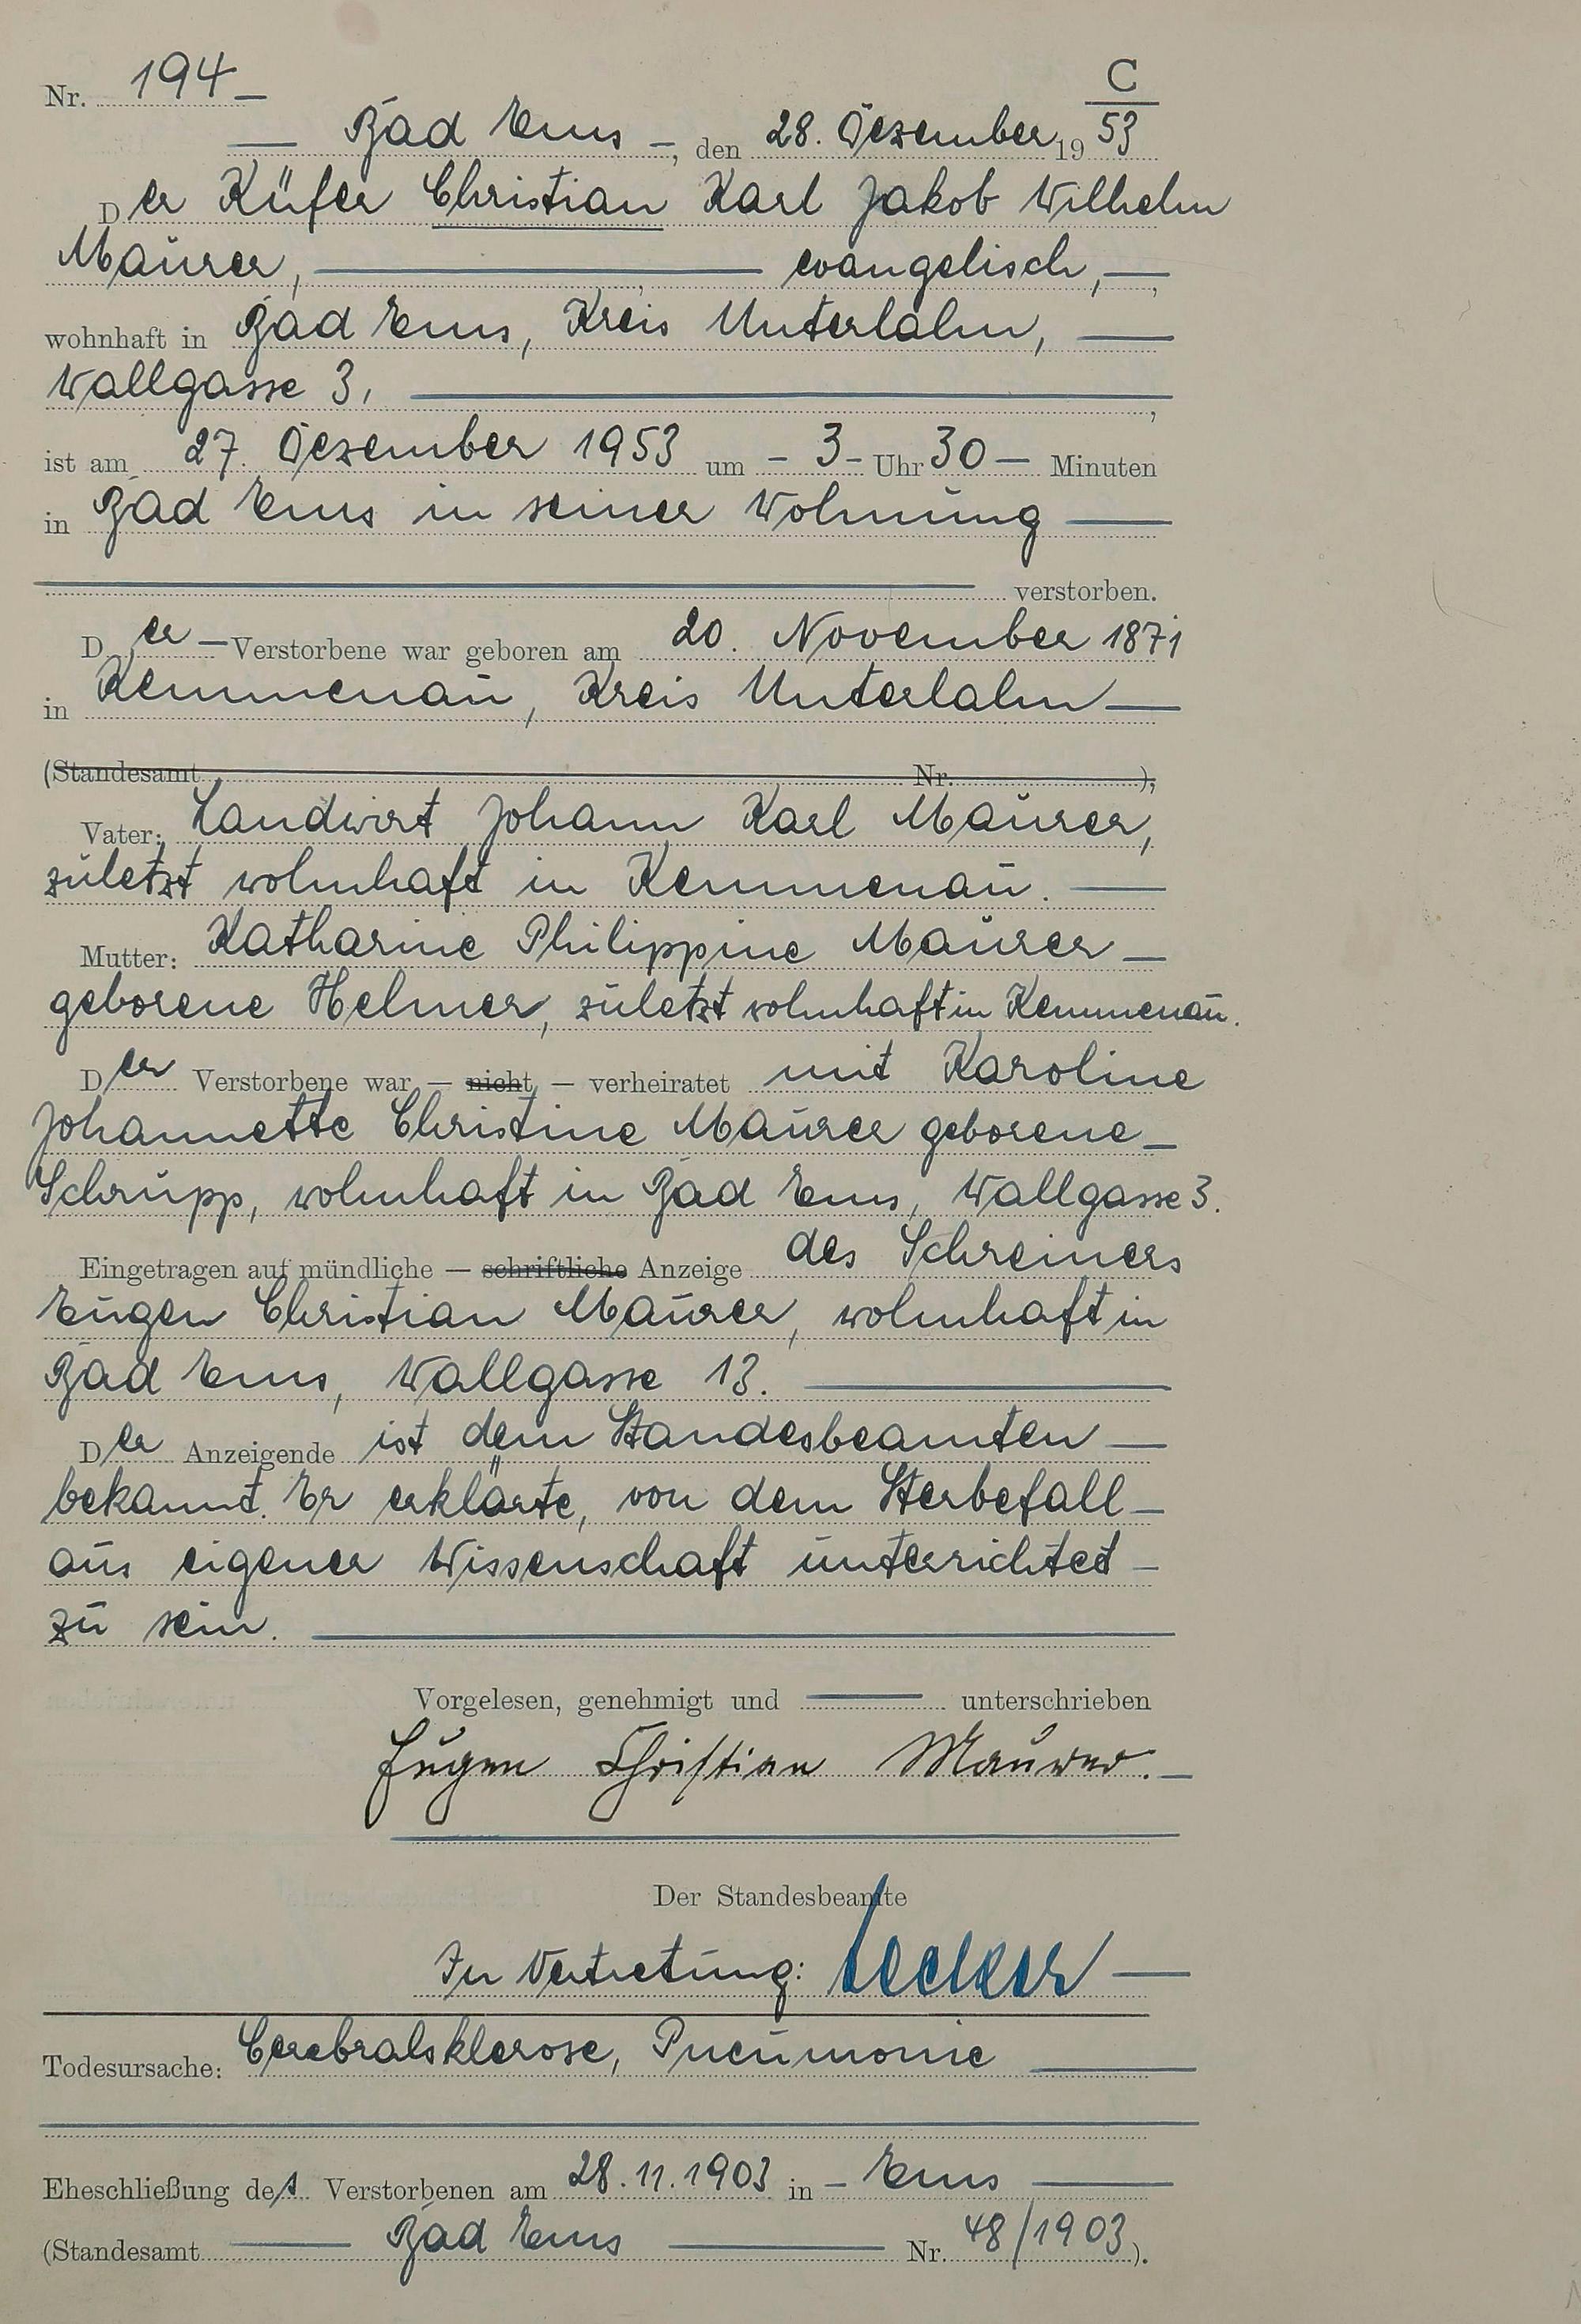 C
Nr. 194 –
— Bad Ems –, den 28. Dezember 1953
Der Küfer Christian Karl Jakob Wilhelm
Maurer, — evangelisch, —,
wohnhaft in Bad Ems, Kreis Unterlahn, —
Wallgasse 3, —,
ist am 27. Dezember 1953 um – 3 – Uhr 30 — Minuten
in Bad Ems in seiner Wohnung —
— verstorben.
Der — Verstorbene war geboren am 20. November 1871
in Kemmenau, Kreis Unterlahn —
(Standesamt Nr. ),
Vater: Landwirt Johann Karl Maurer,
zuletzt wohnhaft in Kemmenau. —
Mutter: Katharine Philippine Maurer –
geborene Helmer, zuletzt wohnhaft in Kemmenau.
Der Verstorbene war — nicht — verheiratet mit Karoline
Johannette Christine Maurer geborene –
Schrupp, wohnhaft in Bad Ems, Wallgasse 3.
Eingetragen auf mündliche — schriftliche Anzeige des Schreiners
Eugen Christian Maurer, wohnhaft in
Bad Ems, Wallgasse 13. —
Der Anzeigende ist dem Standesbeamten —
bekannt. Er erklärte, von dem Sterbefall –
aus eigener Wissenschaft unterrichtet –
zu sein. —
Vorgelesen, genehmigt und — unterschrieben
Eugen Christian Maurer. –
Der Standesbeamte
In Vertretung: —
Todesursache: Cerebralsklerose, Pneumonie —
Eheschließung des Verstorbenen am 28.11.1903 in – Ems —
(Standesamt — Bad Ems — Nr. 48/1903).